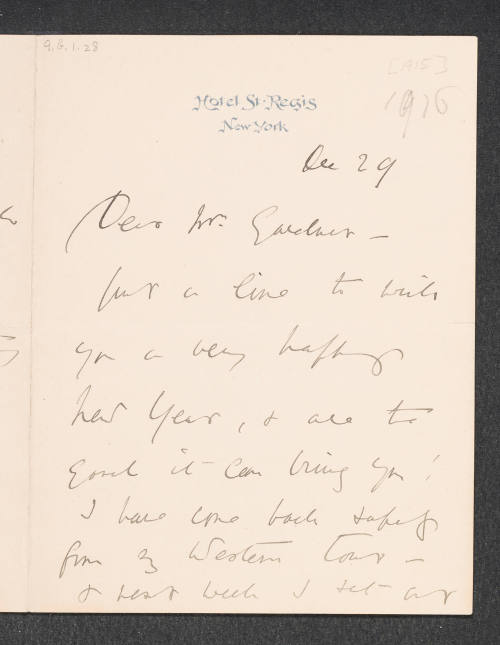 9.G.1.28
[1915]
1916
Hotel St. Regis
New York
Dec 29
Dear Mrs. Gardner –
Just a line to wish
you a very happy
New Year, & all the
good it can bring you!
I have come back safely
from my Western tour –
& next week I set out